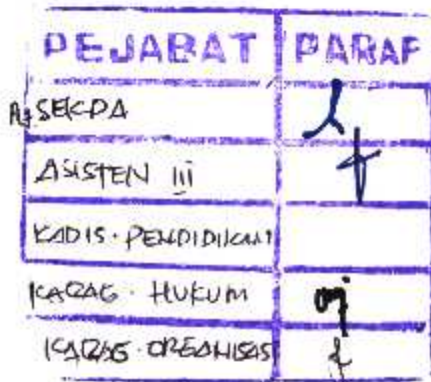 PEJABAT PARAF
Pj SEKDA
ASISTEN III
KADIS. PENDIDIKAN
KABAG. HUKUM
KABAG. ORGANISASI